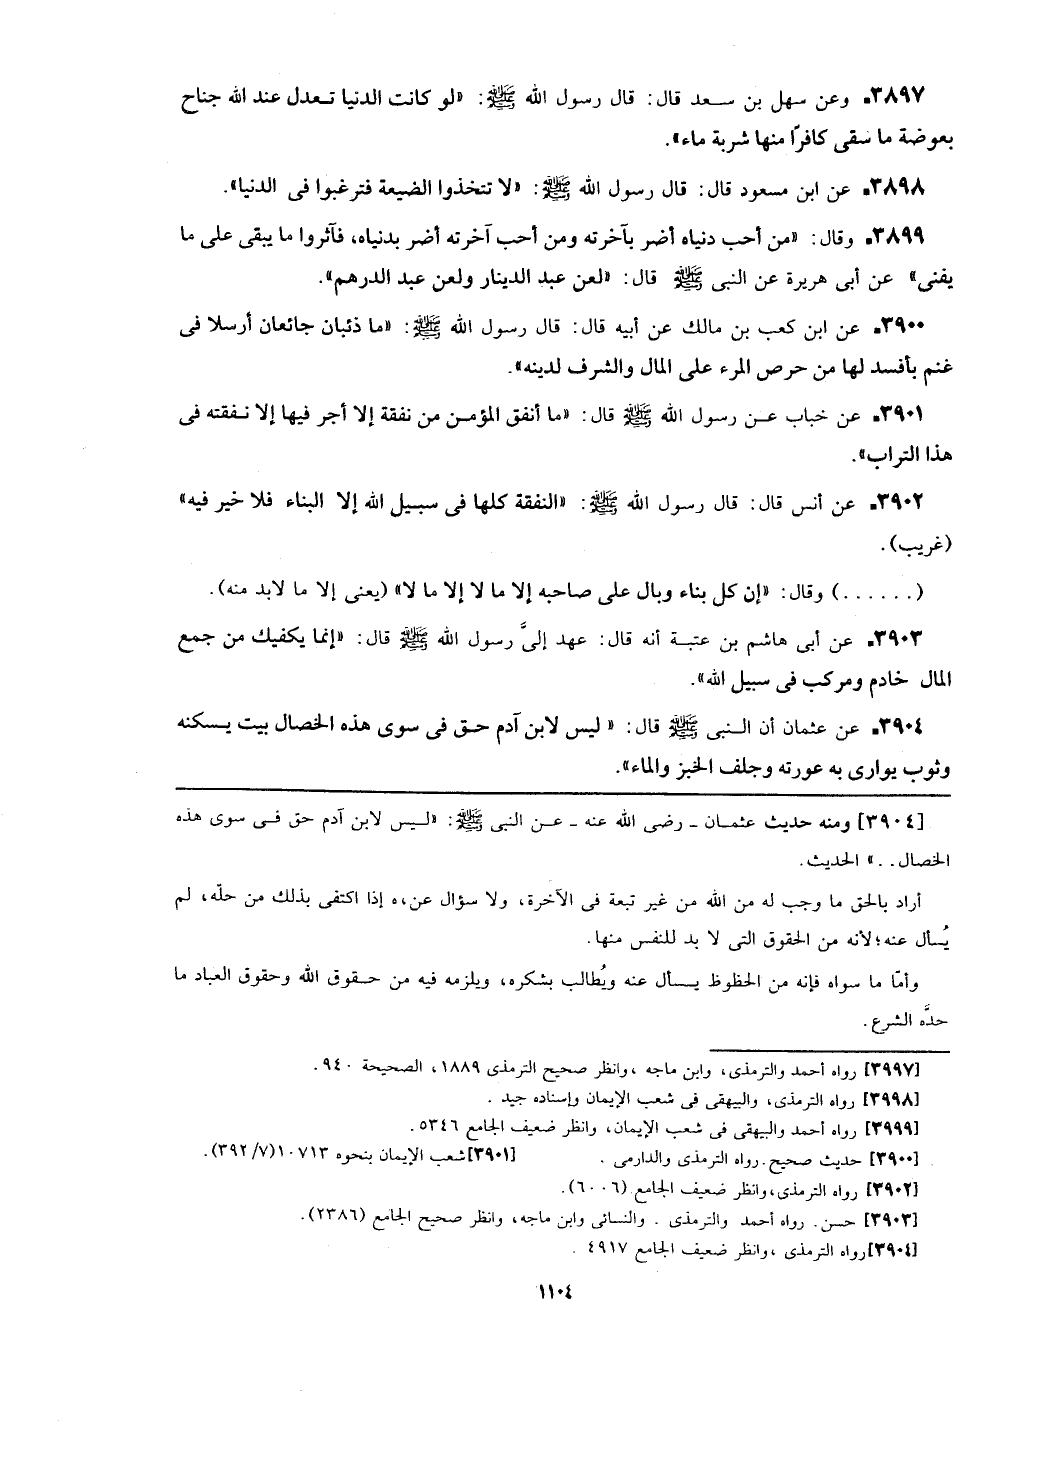 ٣٨٩٧. وعن سهل بن سعد قال: قال رسول الله ﷺ: «لو كانت الدنيا تعدل عند الله جناح
بعوضة ما سقى كافرًا منها شربة ماء».
٣٨٩٨. عن ابن مسعود قال: قال رسول الله ﷺ: «لا تتخذوا الضيعة فترغبوا فى الدنيا».
٣٨٩٩. وقال: «من أحب دنياه أضر بآخرته ومن أحب آخرته أضر بدنياه، فآثروا ما يبقى على ما
يفنى» عن أبى هريرة عن النبى ﷺ قال: «لعن عبد الدينار ولعن عبد الدرهم».
٣٩٠٠. عن ابن كعب بن مالك عن أبيه قال: قال رسول الله ﷺ: «ما ذئبان جائعان أرسلا فى
غنم بأفسد لها من حرص المرء على المال والشرف لدينه».
٣٩٠١. عن خباب عـن رسول الله ﷺ قال: «ما أنفق المؤمـن من نفقة إلا أجر فيها إلا نـفقته فى
هذا التراب».
٣٩٠٢. عن أنس قال: قال رسول الله ﷺ: «النفقة كلها فى سبيل الله إلا البناء فلا خير فيه»
(غريب).
(......) وقال: «إن كل بناء وبال على صاحبه إلا ما لا إلا ما لا» (يعنى إلا ما لابد منه).
٣٩٠٣. عن أبى هاشم بن عتبـة أنه قال: عهد إلىَّ رسول الله ﷺ قال: «إنما يكفيك من جمع
المال خادم ومركب فى سبيل الله».
٣٩٠٤. عن عثمان أن الـنبى ﷺ قال: « ليس لابن آدم حـق فى سوى هذه الخصال بيت يسكنه
وثوب يوارى به عورته وجلف الخبز والماء».
[٣٩٠٤] ومنه حديث عثمـان ـ رضى الله عنه ـ عـن النبى ﷺ: «لـيس لابن آدم حق فـى سوى هذه
الخصال..» الحديث.
أراد بالحق ما وجب له من الله من غير تبعة فى الآخرة، ولا سؤال عن،ه إذا اكتفى بذلك من حلّه، لم
يُسأل عنه؛لأنه من الحقوق التى لا بد للنفس منها.
وأمّا ما سواه فإنه من الحظوظ يسأل عنه ويُطالب بشكره، ويلزمه فيه من حـقوق الله وحقوق العباد ما
حدَّه الشرع.
[٣٩٩٧] رواه أحمد والترمذى، وابن ماجه ،وانظر صحيح الترمذى ١٨٨٩، الصحيحة ٩٤٠.
[٣٩٩٨] رواه الترمذى، والبيهقى فى شعب الإيمان وإسناده جيد .
[٣٩٩٩] رواه أحمد والبيهقى فى شعب الإيمان، وانظر ضعيف الجامع ٥٣٤٦.
[٣٩٠٠] حديث صحيح.رواه الترمذى والدارمى . [٣٩٠١]شعب الإيمان بنحوه ١٠٧١٣(٣٩٢/٧).
[٣٩٠٢] رواه الترمذى،وانظر ضعيف الجامع (٦٠٠٦).
[٣٩٠٣] حسن. رواه أحمد والترمذى . والنسائى وابن ماجه، وانظر صحيح الجامع (٢٣٨٦).
[٣٩٠٤]رواه الترمذى ،وانظر ضعيف الجامع ٤٩١٧ .
١١٠٤